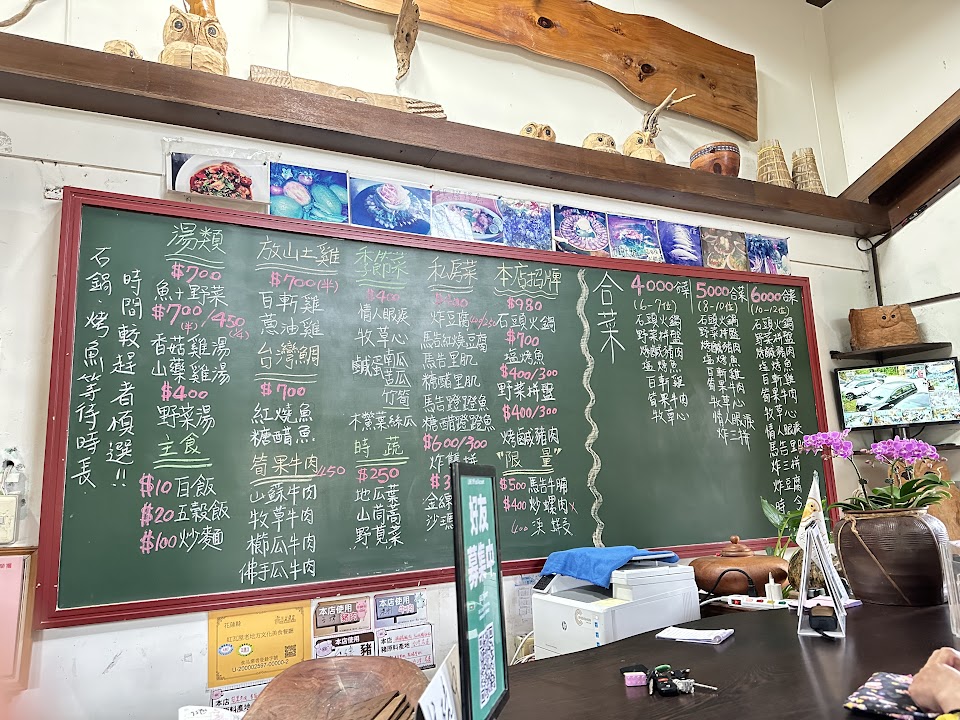 石鍋、烤魚等待時長
時間較趕者慎選!!
湯類
$700
魚+野菜
$700/450
(半)
香菇雞湯
山藥雞湯
$400
野菜湯
主食
$10 白飯
$20 五穀飯
$100 炒麵
放山土雞
$700(半)
白斬雞
蔥油雞
台灣鯛
$700
紅燒魚
糖醋魚
筍果牛肉 450
山蘇牛肉
牧草牛肉
櫛瓜牛肉
佛手瓜牛肉
季節菜
$400
情人眼淚
牧草心
鹹蛋南瓜
苦瓜
竹筍
木虌菜絲瓜
時蔬
$250
地瓜葉
山茼蒿
野莧菜
私房菜
炸豆腐
馬告紅燒豆腐
馬告里肌
糖醋里肌
馬告蹬蹬魚
糖醋蹬蹬魚
$600/300
本店招牌
$980
石頭火鍋
$700
塩烤魚
$400/300
野菜拼盤
$400/300
烤鹹豬肉
"限量"
$500 馬告牛腩
$400 炒螺肉
合菜
4000合菜
(6-7位)
石頭火鍋
野菜拼盤
烤鹹豬肉
塩烤魚
白斬雞
筍果牛肉
牧草心
5000合菜
(8-10位)
石頭火鍋
野菜拼盤
烤鹹豬肉
塩烤魚
白斬雞
筍果牛肉
牧草心
情人眼淚
炸三拼
6000合菜
(10-12位)
石頭火鍋
野菜拼盤
烤鹹豬肉
塩烤魚
白斬雞
筍果牛肉
牧草心
情人眼淚
好友
募集中
花蓮縣
紅瓦屋老地方文化美食餐廳
U-200002597-00000-2
本店使用
本店使用
本店使用
豬
豬原料產地
本店
豬原料產地